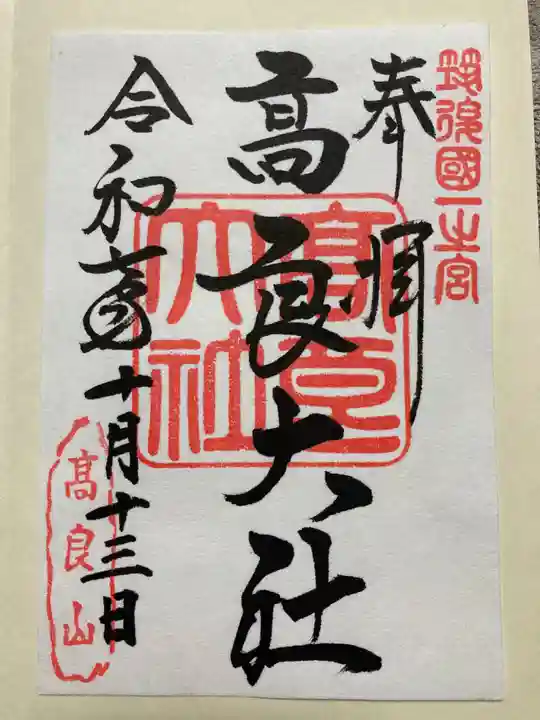 筑後國一之宮
奉拝
高良大社
髙良大社
令和六年十月十三日
高良山